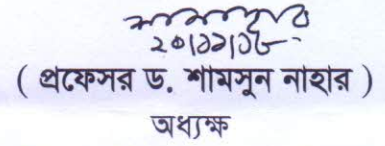 ২০।১১।১৮
( প্রফেসর ড. শামসুন নাহার )
অধ্যক্ষ